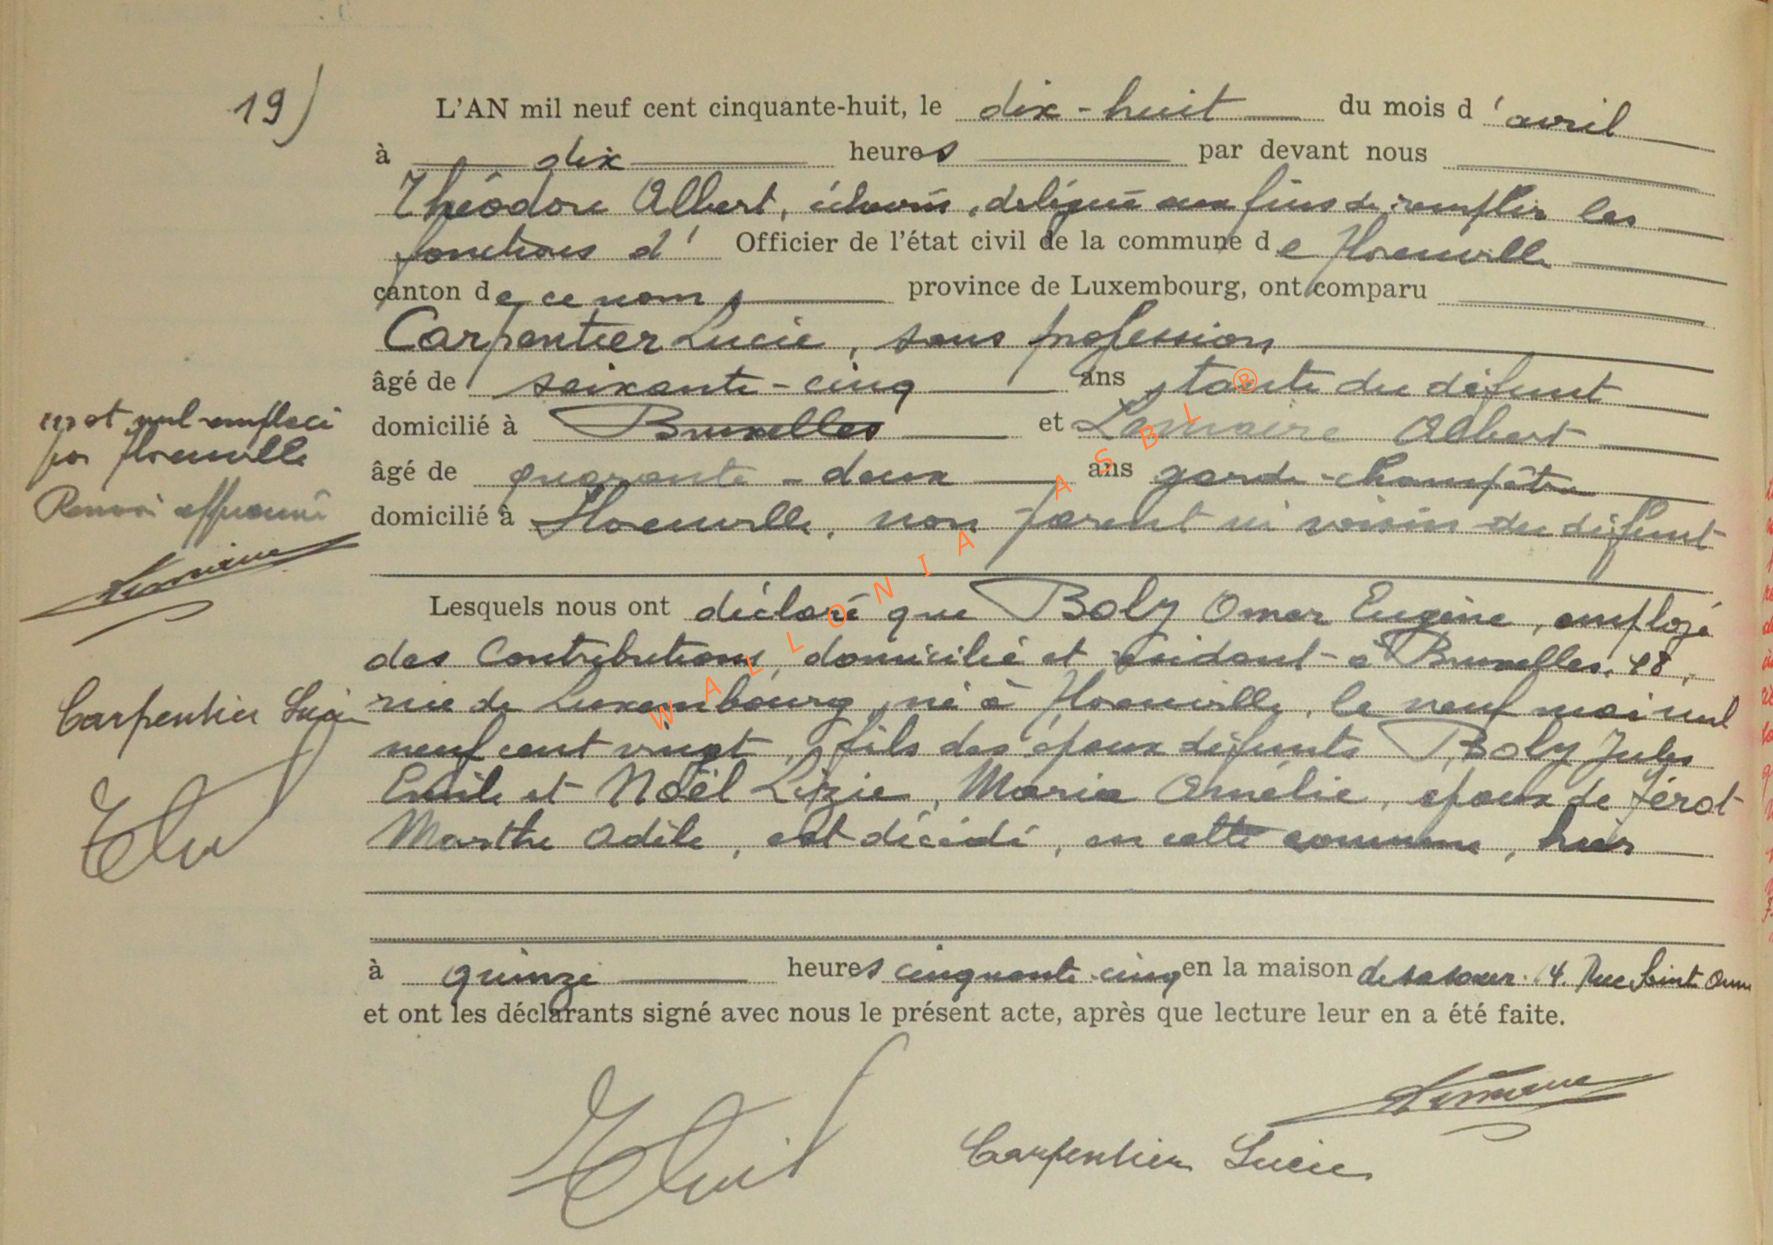 19)
L'AN mil neuf cent cinquante-huit, le dix-huit du mois d'avril
à dix heures par devant nous
Théodore Albert, échevin, délégué aux fins de remplir les
fonctions d' Officier de l'état civil de la commune de Florenville
canton de ce nom, province de Luxembourg, ont comparu
Carpentier Lucie, sans profession
âgé de soixante-cinq ans, tante du défunt
domicilié à Bruxelles et Lemaire Albert
âgé de quarante-deux ans garde-champêtre
domicilié à Florenville, non parent ni voisin du défunt
est nul remplacé
par Florenville
Renvoi approuvé
Lesquels nous ont déclaré que Boly Omer Eugène, employé
des Contributions, domicilié et résidant à Bruxelles, 48,
rue de Luxembourg, né à Florenville, le neuf mai mil
neuf cent vingt, fils des époux défunts Boly Jules
Emile et Noël Lizie, Maria Amélie, époux de Férot
Marthe Adèle, est décédé, en cette commune, hier
Carpentier Lucie
à quinze heures cinquante-cinq en la maison de sa soeur. 14. Rue Sainte Anne
et ont les déclarants signé avec nous le présent acte, après que lecture leur en a été faite.
Carpentier Lucie
WALLONIA ASBL ®